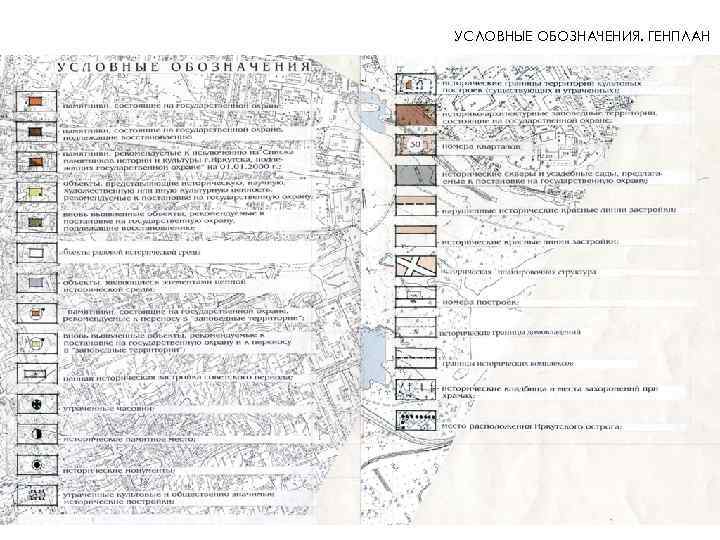 УСЛОВНЫЕ ОБОЗНАЧЕНИЯ. ГЕНПЛАН
УСЛОВНЫЕ ОБОЗНАЧЕНИЯ:
памятники, состоящие на государственной охране;
памятники, состоящие на государственной охране,
подлежащие восстановлению;
памятники, рекомендуемые к исключению из Списка
памятников истории и культуры г.Иркутска, подле-
жащих государственной охране" на 01.01.2000 г.;
объекты, представляющие историческую, научную,
художественную или иную культурную ценность,
рекомендуемые к постановке на государственную охрану;
вновь выявленные объекты, рекомендуемые к
постановке на государственную охрану,
подлежащие восстановлению;
объекты рядовой исторической среды
объекты, являющиеся элементами ценной
исторической среды;
памятники, состоящие на государственной охране,
рекомендуемые к переносу в "заповедные территории";
вновь выявленные объекты, рекомендуемые к
постановке на государственную охрану и к переносу
в "заповедные территории";
ценная историческая застройка советского периода;
утраченные часовни;
исторические памятные места;
исторические монументы;
утраченные культовые и общественно значимые
исторические постройки;
исторические границы территорий культовых
построек (существующих и утраченных);
историко-архитектурные заповедные территории,
состоящие на государственной охране;
50
номера кварталов;
исторические скверы и усадебные сады, предлага-
емые к постановке на государственную охрану
нарушенные исторические красные линии застройки;
исторические красные линии застройки;
историческая планировочная структура
номера построек;
исторические границы домовладений
границы исторических комплексов;
исторические кладбища и места захоронений при
храмах;
место расположения Иркутского острога;